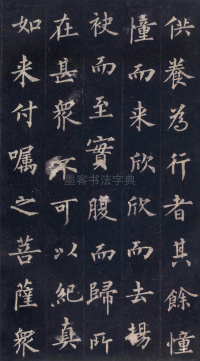 供養為行者其餘憧
憧而来欣欣而去揚
袂而至實腹而歸所
在甚眾不可以紀真
如来付囑之菩薩眾
墨客书法字典